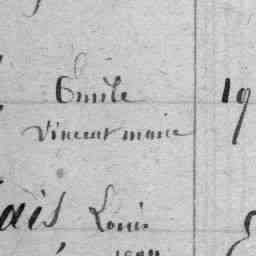 Emile 19
Vincent marie
ais Louis